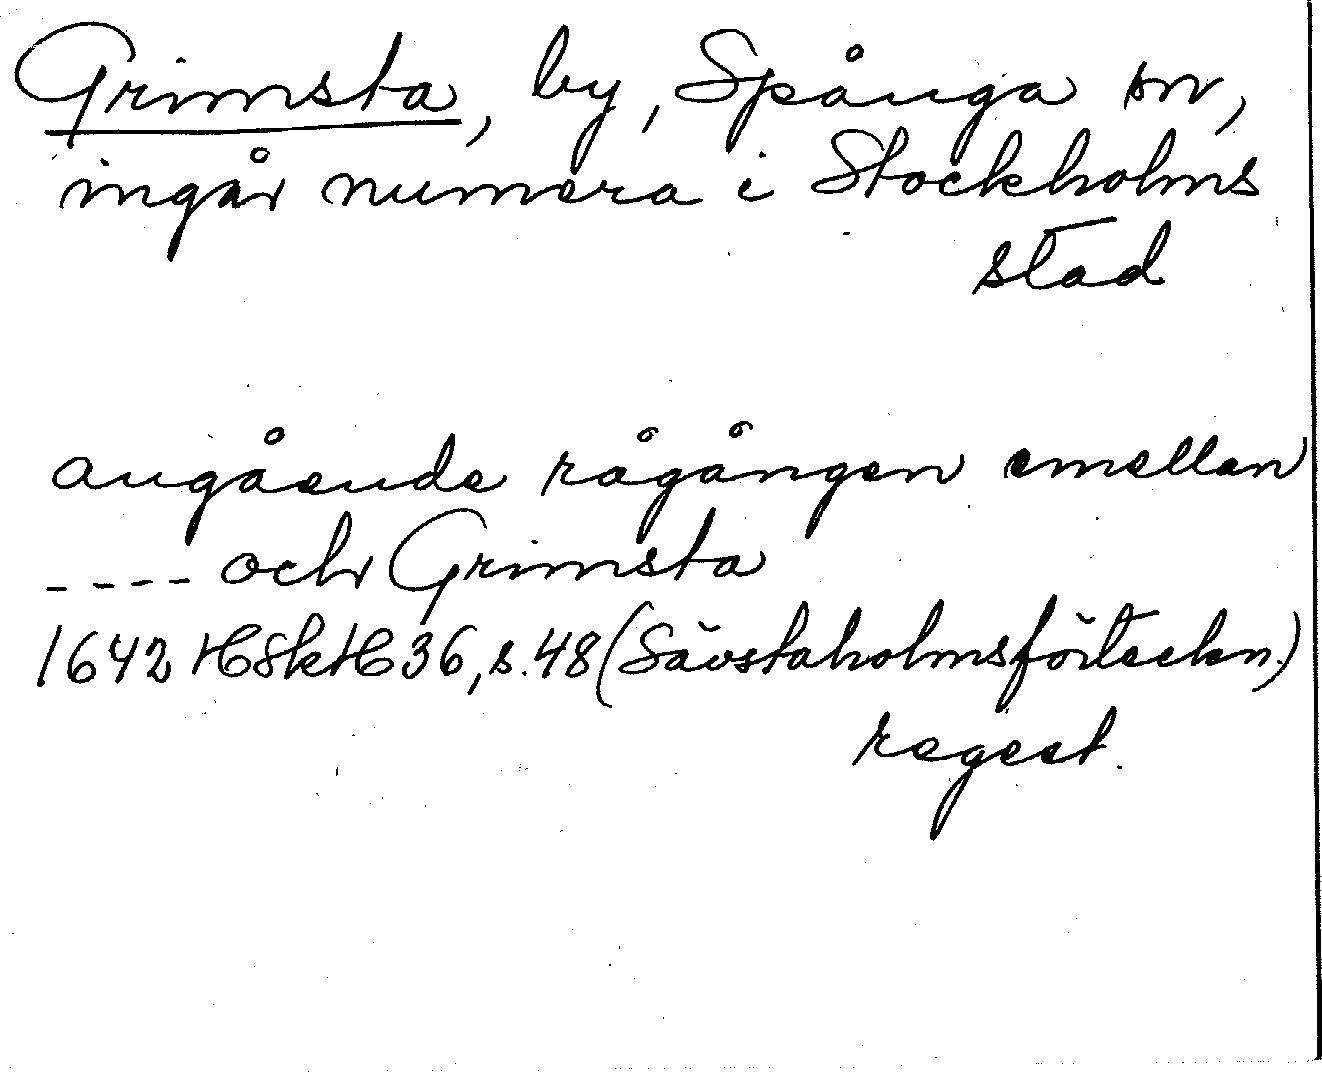 Grimsta, by, Spånga sn,
ingår numera i Stockholms
stad
angående rågången emellan
---- och Grimsta
1642 HSkH 36, s. 48 (Sävstaholmsförteckn.)
regest.